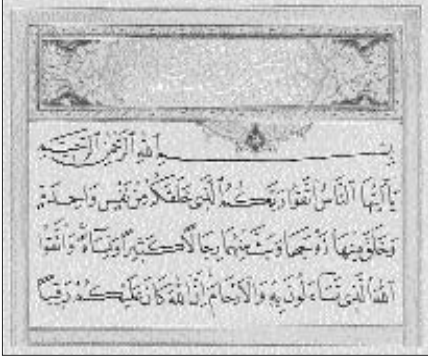 بسم الله الرحمن الرحيم
يَا أَيُّهَا ٱلنَّاسُ ٱتَّقُوا رَبَّكُمُ ٱلَّذِي خَلَقَكُمْ مِنْ نَفْسٍ وَاحِدَةٍ
وَخَلَقَ مِنْهَا زَوْجَهَا وَبَثَّ مِنْهُمَا رِجَالًا كَثِيرًا وَنِسَاءً وَٱتَّقُوا
ٱللهَ ٱلَّذِي تَسَاءَلُونَ بِهِ وَٱلْأَرْحَامَ إِنَّ ٱللهَ كَانَ عَلَيْكُمْ رَقِيبًا